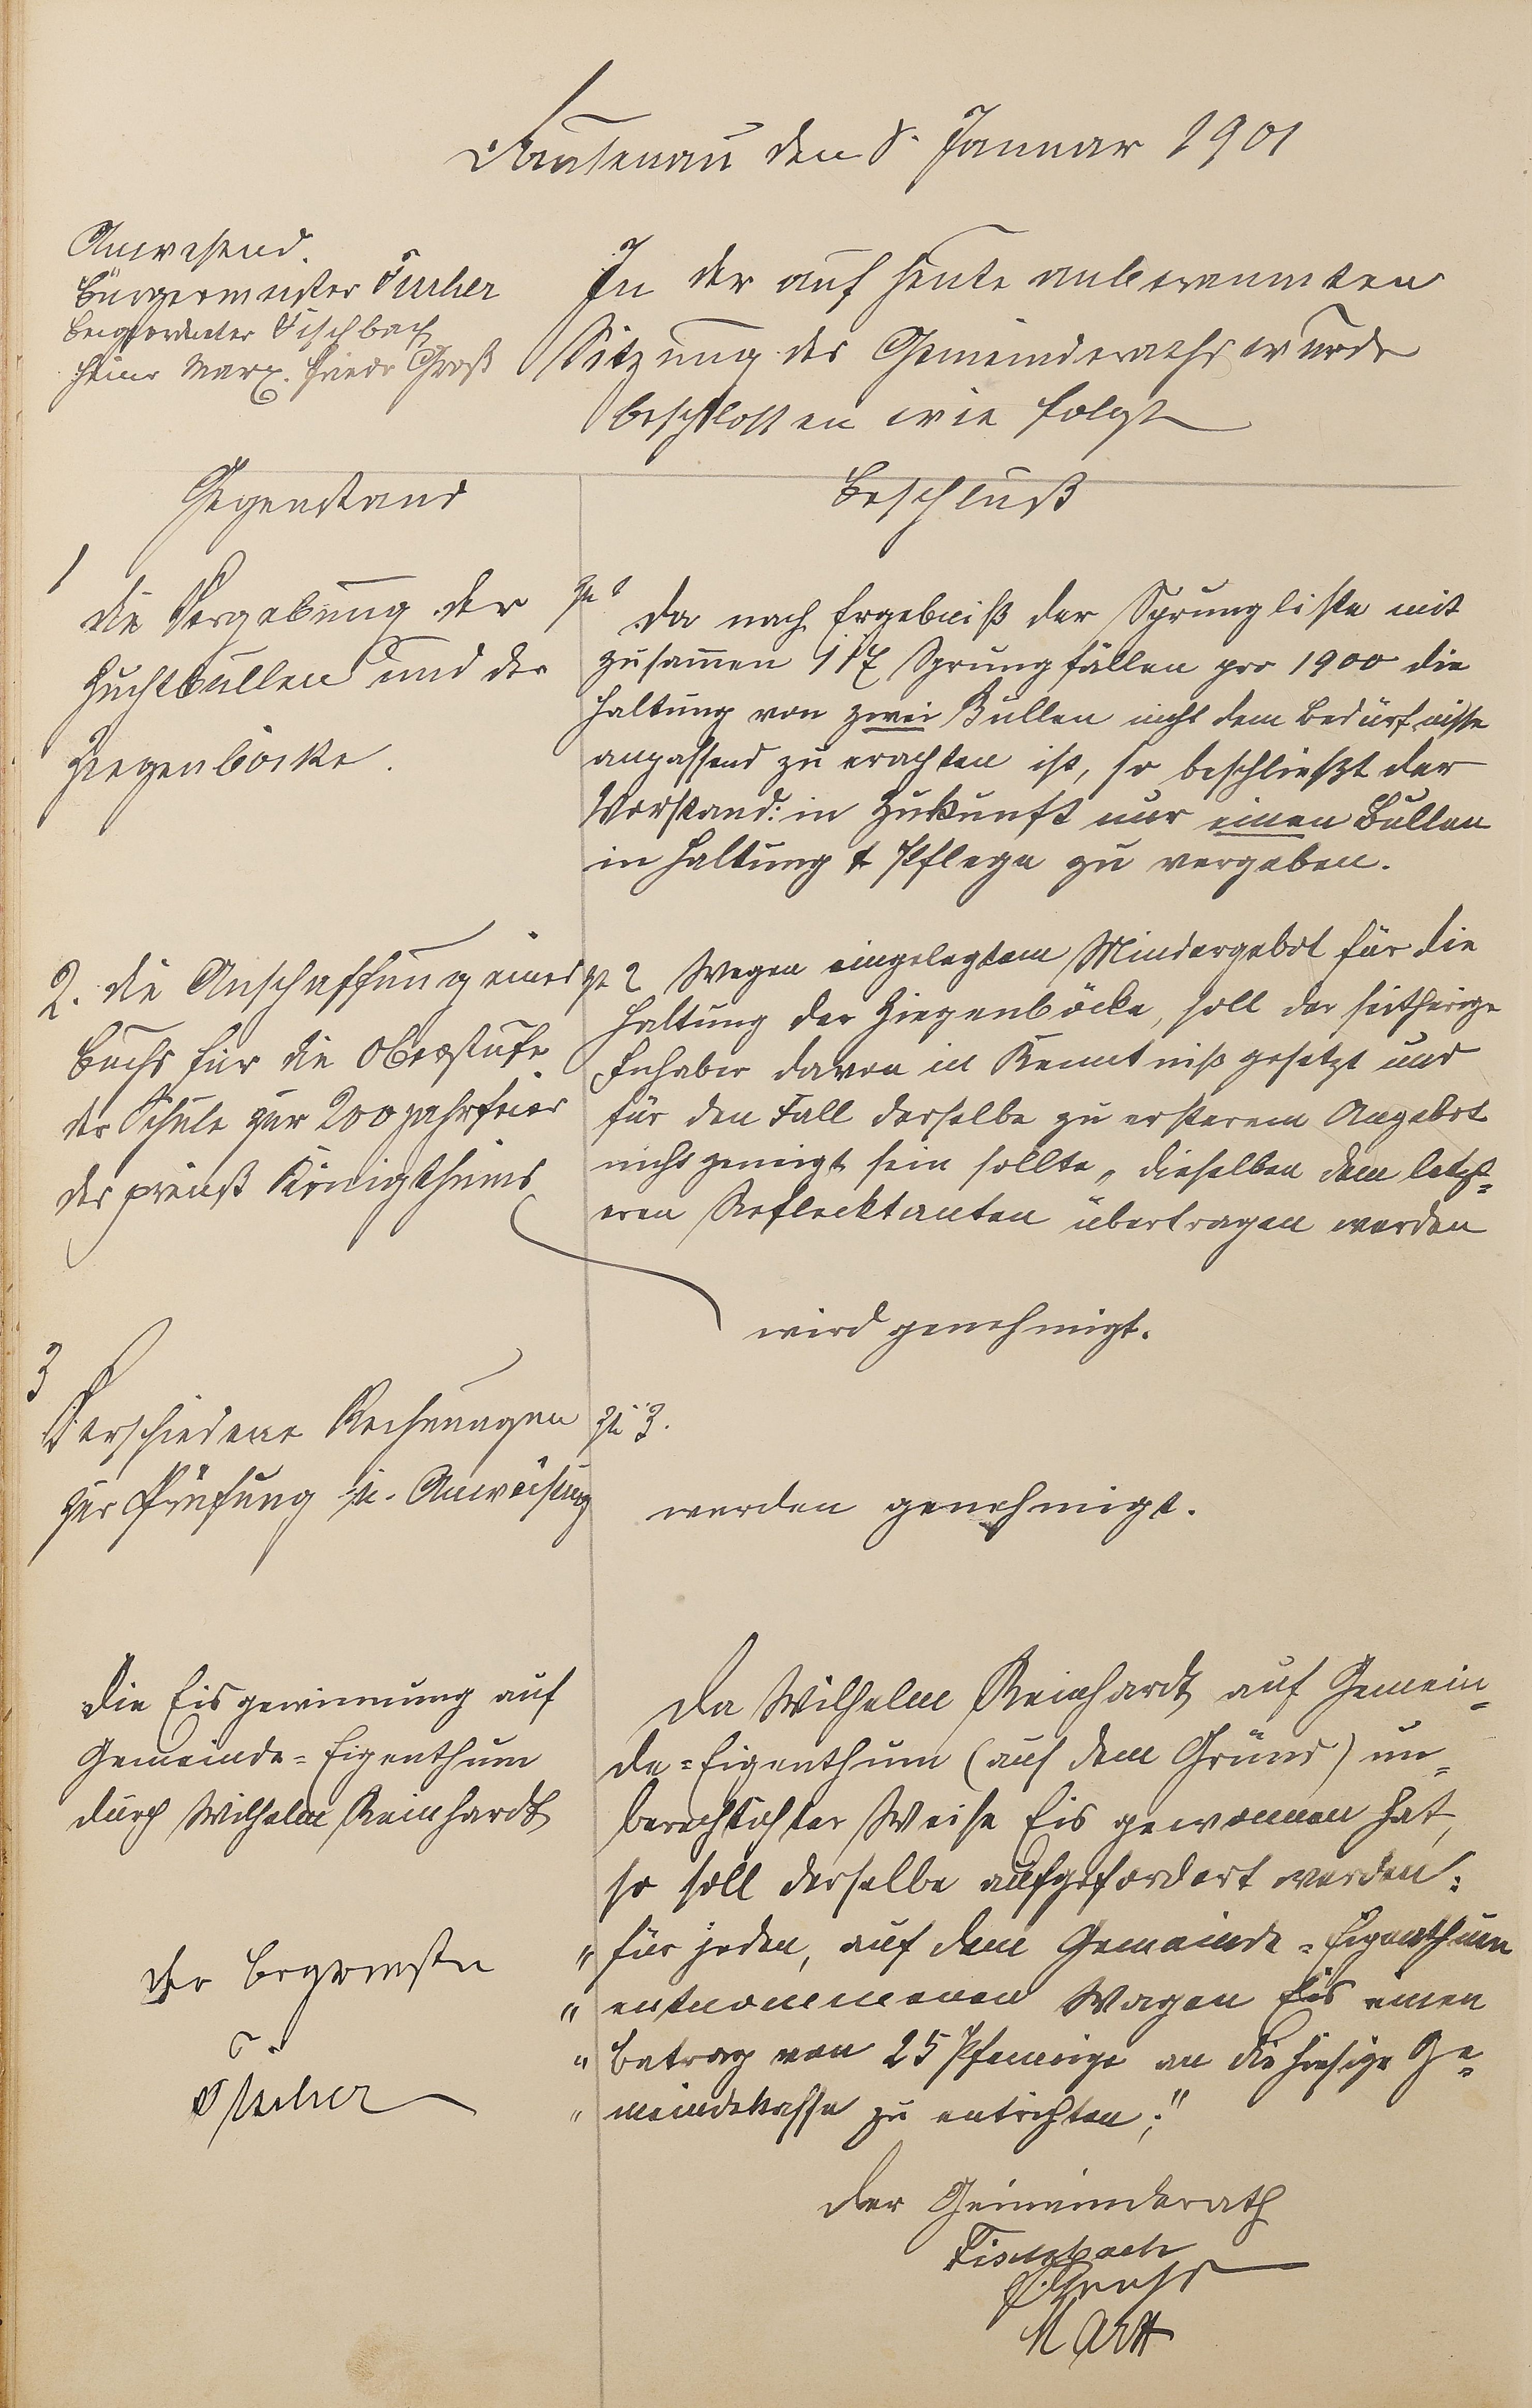 Dausenau den 8. Januar 1901
Anwesend.
Bürgermeister Fischer
Beigeordneter Fischbach
Heinr Marx. Friedr Groß
In der auf heute anberaumten
Sitzung des Gemeinderaths wurde
beschlossen wie folgt
Gegenstand
Beschluß
1
die Vergebung der
Zuchtbullen und der
Ziegenböcke.
zu 1
Da nach Ergebniß der Sprungliste mit
zusammen 117 Sprungfällen pro 1900 die
Haltung von zwei Bullen nicht dem Bedürfnisse
anpassend zu erachten ist, so beschließt der
Vorstand: in Zukunft nur einen Bullen
in Haltung & Pflege zu vergeben.
2. die Anschaffung eines
Buchs für die Oberstufe
der Schule zur 200 jahrfeier
des preuß Königthums
zu 2 Wegen eingelegtem Mindergebot für die
Haltung der Ziegenböcke, soll der seitherige
Inhaber davon in Kenntniß gesetzt und
für den Fall derselbe zu ersterem Angebot
nicht geneigt sein sollte, dieselben dem letzt=
eren Reflecktanten übertragen werden
wird genehmigt.
3
Verschiedene Rechnungen
zur Prüfung u. Anweisung
zu 3.
werden genehmigt.
Die Eisgewinnung auf
Gemeinde=Eigenthum
durch Wilhelm Reinhardt
Da Wilhelm Reinhardt auf Gemein=
de=Eigenthum (auf dem Grün) un=
berechtichter Weise Eis gewonnen hat,
so soll derselbe aufgefordert werden:
" für jeden, auf dem Gemeinde=Eigenthum
" entnommenen Wagen Eis einen
" Betrag von 25 Pfennige an die hiesige Ge=
" meindekasse zu entrichten;"
Der Bürgermeister
Fischer
Der Gemeinderath
Fischbach
F. Gross
Marx